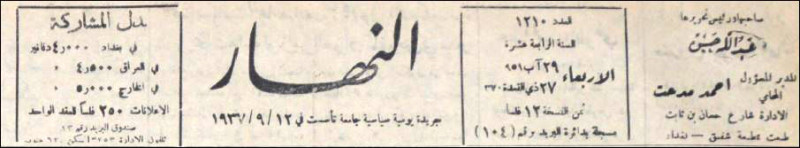 صاحبها ورئيس تحريرها
المدير المسؤول
المحامي
احمد مدحت
الادارة شارع حسان بن ثابت
طبعت بمطبعة شفيق - بغداد
العدد ١٢١٠
السنة الرابعة عشرة
الاربعاء
٢٩ آب ٩٥١
٢٧ ذي القعدة ٣٧٠
ثمن النسخة ١٢ فلسا
مسجلة بدائرة البريد برقم (١٠٤)
النهار
جريدة يومية سياسية جامعة تأسست في ١٢/٩/١٩٣٧
بدل المشاركة
في بغداد ٤٫٠٠٠ دنانير
في العراق ٤٫٥٠٠
في الخارج ٥٫٠٠٠
الاعلانات ٢٥٠ فلسا للعقد الواحد
صندوق البريد رقم ٢٣
تلفون الادارة